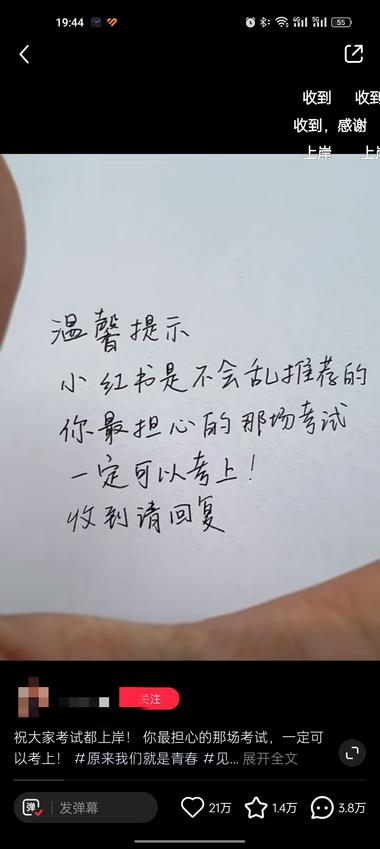 19:44
55
收到 收到
收到，感谢
上岸 上岸
温馨提示
小红书是不会乱推荐的
你最担心的那场考试
一定可以考上！
收到请回复
关注
祝大家考试都上岸！ 你最担心的那场考试，一定可
以考上！ #原来我们就是青春 #见... 展开全文
弹 发弹幕 21万 1.4万 3.8万